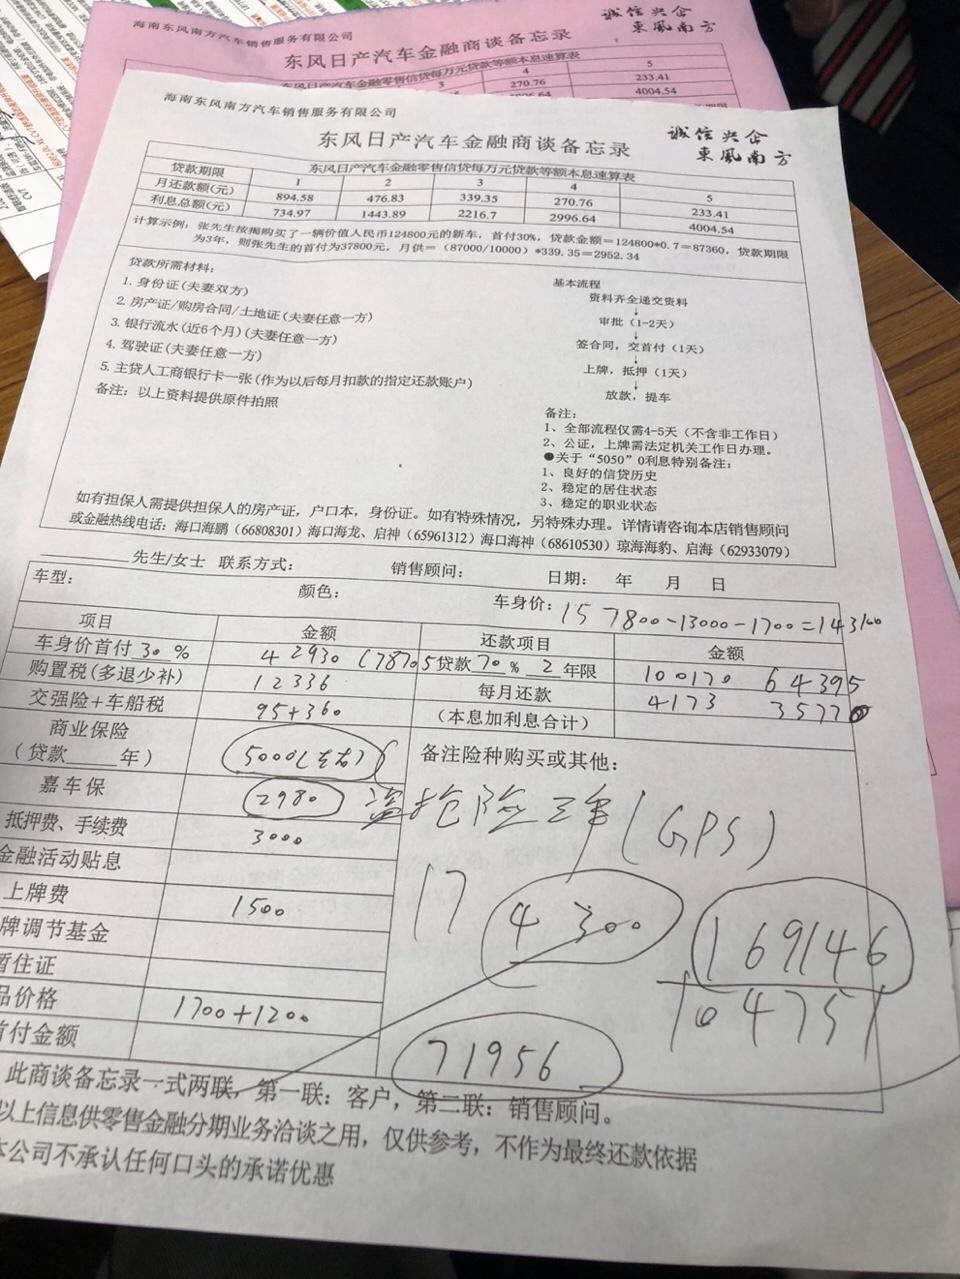 海南东风南方汽车销售服务有限公司
誠信興企
東風南方
东风日产汽车金融商谈备忘录
东风日产汽车金融零售信贷每万元贷款等额本息速算表
3 4 5
270.76 233.41
4004.54
海南东风南方汽车销售服务有限公司
誠信興企
東風南方
东风日产汽车金融商谈备忘录
东风日产汽车金融零售信贷每万元贷款等额本息速算表
贷款期限 1 2 3 4 5
月还款额(元) 894.58 476.83 339.35 270.76 233.41
利息总额(元) 734.97 1443.89 2216.7 2996.64 4004.54
计算示例：张先生按揭购买了一辆价值人民币124800元的新车，首付30%，贷款金额＝124800*0.7＝87360，贷款期限
为3年，则张先生的首付为37800元，月供＝（87000/10000）*339.35＝2952.34
贷款所需材料：
1. 身份证(夫妻双方)
2. 房产证/购房合同/土地证(夫妻任意一方)
3. 银行流水(近6个月)(夫妻任意一方)
4. 驾驶证(夫妻任意一方)
5. 主贷人工商银行卡一张(作为以后每月扣款的指定还款账户)
备注：以上资料提供原件拍照
基本流程
资料齐全递交资料
↓
审批（1-2天）
↓
签合同，交首付（1天）
↓
上牌，抵押（1天）
↓
放款，提车
备注：
1、全部流程仅需4-5天（不含非工作日）
2、公证，上牌需法定机关工作日办理。
●关于“5050”0利息特别备注：
1、良好的信贷历史
2、稳定的居住状态
3、稳定的职业状态
如有担保人需提供担保人的房产证，户口本，身份证。如有特殊情况，另特殊办理。详情请咨询本店销售顾问
或金融热线电话：海口海鹏（66808301）海口海龙、启神（65961312）海口海神（68610530）琼海海豹、启海（62933079）
先生/女士 联系方式： 销售顾问： 日期： 年 月 日
车型： 颜色： 车身价：157800-13000-1700=143100
项目 金额 还款项目 金额
车身价首付30% 42930 (78705 贷款70% 2年限 100170 64395
购置税(多退少补) 12336 每月还款 4173 3577
交强险+车船税 95+360 （本息加利息合计）
商业保险
（贷款 年） 5000(左右) 备注险种购买或其他：
嘉车保 2980 盗抢险 三年 (GPS)
抵押费、手续费 3000
金融活动贴息
上牌费 1500
17 4300 169146
牌调节基金
暂住证
品价格 1700+1200
104751
首付金额
71956
此商谈备忘录一式两联，第一联：客户，第二联：销售顾问。
以上信息供零售金融分期业务洽谈之用，仅供参考，不作为最终还款依据
本公司不承认任何口头的承诺优惠